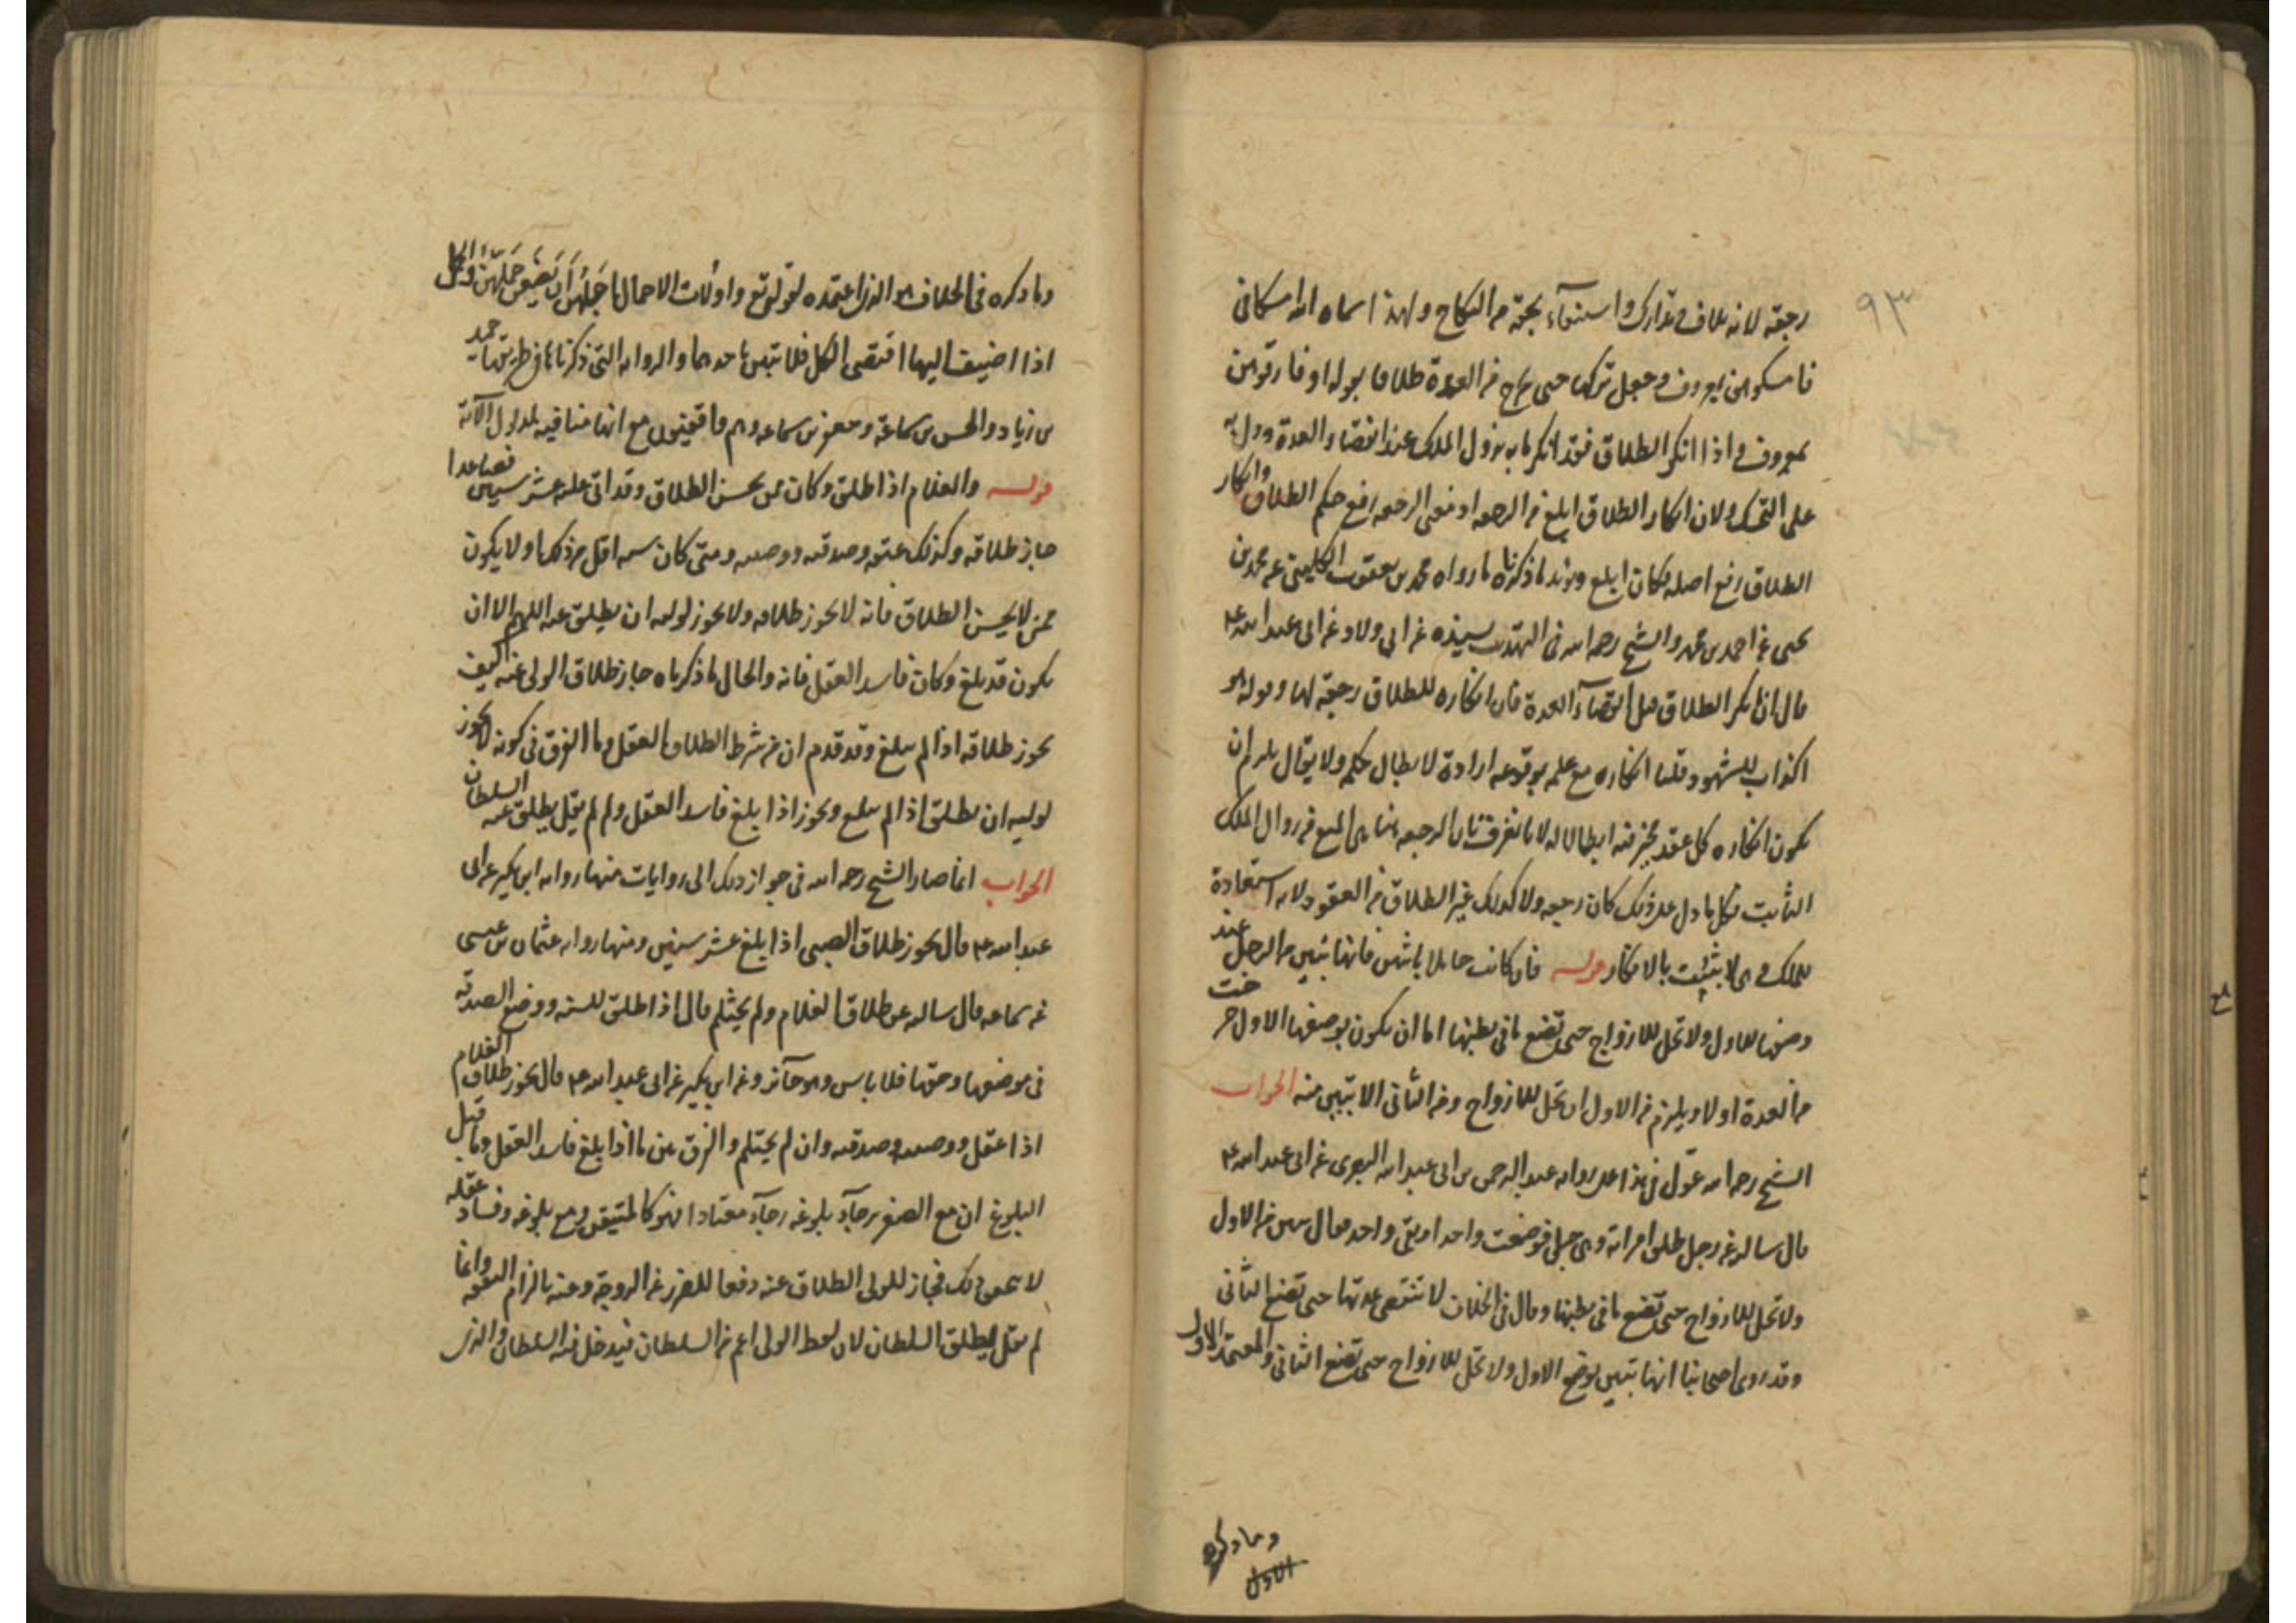 ٩٣
رجعة لانه تلاف وتدارك واستبقاء بحقه من النكاح ولهذا اسماه الله امساكا في
فامسكوهن بمعروف وجعل تركها حتى تخرج من العدة طلاقا بقوله او فارقوهن
بمعروف واذا انكر الطلاق فقد انكر ما به يزول الملك عند انقضاء العدة ودل
على التمسك ولان انكار الطلاق ابلغ من الرجعه اذ معنى الرجعه رفع حكم الطلاق وانكار
الطلاق رفع اصله فكان ابلغ ويؤيد ما ذكرناه ما رواه محمد بن يعقوب الكليني عن محمد بن
يحيى عن احمد بن محمد والشيخ رحمه الله في التهذيب بسنده عن ابي ولاد عن ابي عبد الله ع
قال ان انكر الطلاق قبل انقضاء العدة فان انكاره للطلاق رجعة لها وقوله هو
اكذاب للشهود قلنا انكاره مع علمه بوقوعه ارادة لابطال حكمه ولا يقال يلزم ان
يكون انكاره كل عقد يخبر فيه ابطالا له لانا نفرق بان الرجعه هنا هي المنع من زوال الملك
الثابت فكل ما دل على ذلك كان رجعه ولا كذلك غير الطلاق من العقود لانه استعادة
للملك وهي لا يثبت بالانكار قوله فان كانت حاملا باثنين فانها تبين من الرجل عند
وضعها للاول ولا تحل للازواج حتى تضع ما في بطنها اما ان يكون بوضعها الاول خرجت
من العدة او لا ويلزم من الاول ان تحل للازواج ومن الثاني الا تبين منه الجواب
الشيخ رحمه الله عوّل في هذا على رواية عبد الرحمن بن ابي عبد الله البصري عن ابي عبد الله ع
قال سالته عن رجل طلق امراته وهي حبلى فوضعت واحدا وبقى واحد فقال تبين من الاول
ولا تحل للازواج حتى تضع ما في بطنها وقال في الخلاف لا تنقضي عدتها حتى تضع الثاني
وقد روى اصحابنا انها تبين بوضع الاول ولا تحل للازواج حتى تضع الثاني والمعتمد الاول
وما ذكره
الاول
وما ذكره في الخلاف هو الذي اعتمده لقوله تع واولات الاحمال اجلهن ان يضعن حملهن والحمل
اذا اضيف اليها اقتضى الكل فلا تبين باحدهما والرواية التي ذكرناها في طريقها حميد
بن زياد والحسن بن سماعة وجعفر بن سماعه وهم واقفيون مع انها منافيه لمدلول الآية
قوله والغلام اذا طلق وكان ممن يحسن الطلاق وقد اتى عليه عشر سنين فصاعدا
جاز طلاقه وكذلك عتقه وصدقته ووصيته ومتى كان سنه اقل من ذلك او لا يكون
ممن لا يحسن الطلاق فانه لا يجوز طلاقه ولا يجوز لوليه ان يطلق عنه اللهم الا ان
يكون قد بلغ وكان فاسد العقل فانه والحال ما ذكرناه جاز طلاق الولي عنه كيف
يجوز طلاقه اذا لم يبلغ وقد قدم ان من شرط الطلاق العقل وما الفرق في كونه لا يجوز
لوليه ان يطلق اذا لم يبلغ ويجوز اذا بلغ فاسد العقل ولم لم يقل يطلق عنه السلطان
الجواب انما صار الشيخ رحمه الله في جواز ذلك الى روايات منها رواية ابن بكير عن ابي
عبد الله ع قال يجوز طلاق الصبي اذا بلغ عشر سنين ومنها رواية عثمان بن عيسى
عن سماعه قال سالته عن طلاق الغلام ولم يحتلم قال اذا طلق للسنه ووضع الصدقه
في موضعها وحقها فلا باس وهو جائز وعن ابن بكير عن ابي عبد الله ع قال يجوز طلاق الغلام
اذا عقل ووصيته وصدقته وان لم يحتلم والفرق بين ما اذا بلغ فاسد العقل وما قبل
البلوغ ان مع الصغر يرجاء بلوغه رجآء معتادا فهو كالمتيقن ومع بلوغه وفساد عقله
لا يتحقق ذلك فجاز للولي الطلاق عنه دفعا للضرر عن الزوجة وعنه بالزام النفقه وانما
لم يقل يطلق السلطان لان لفظ الولي اعم من السلطان فيدخل فيه السلطان والذي